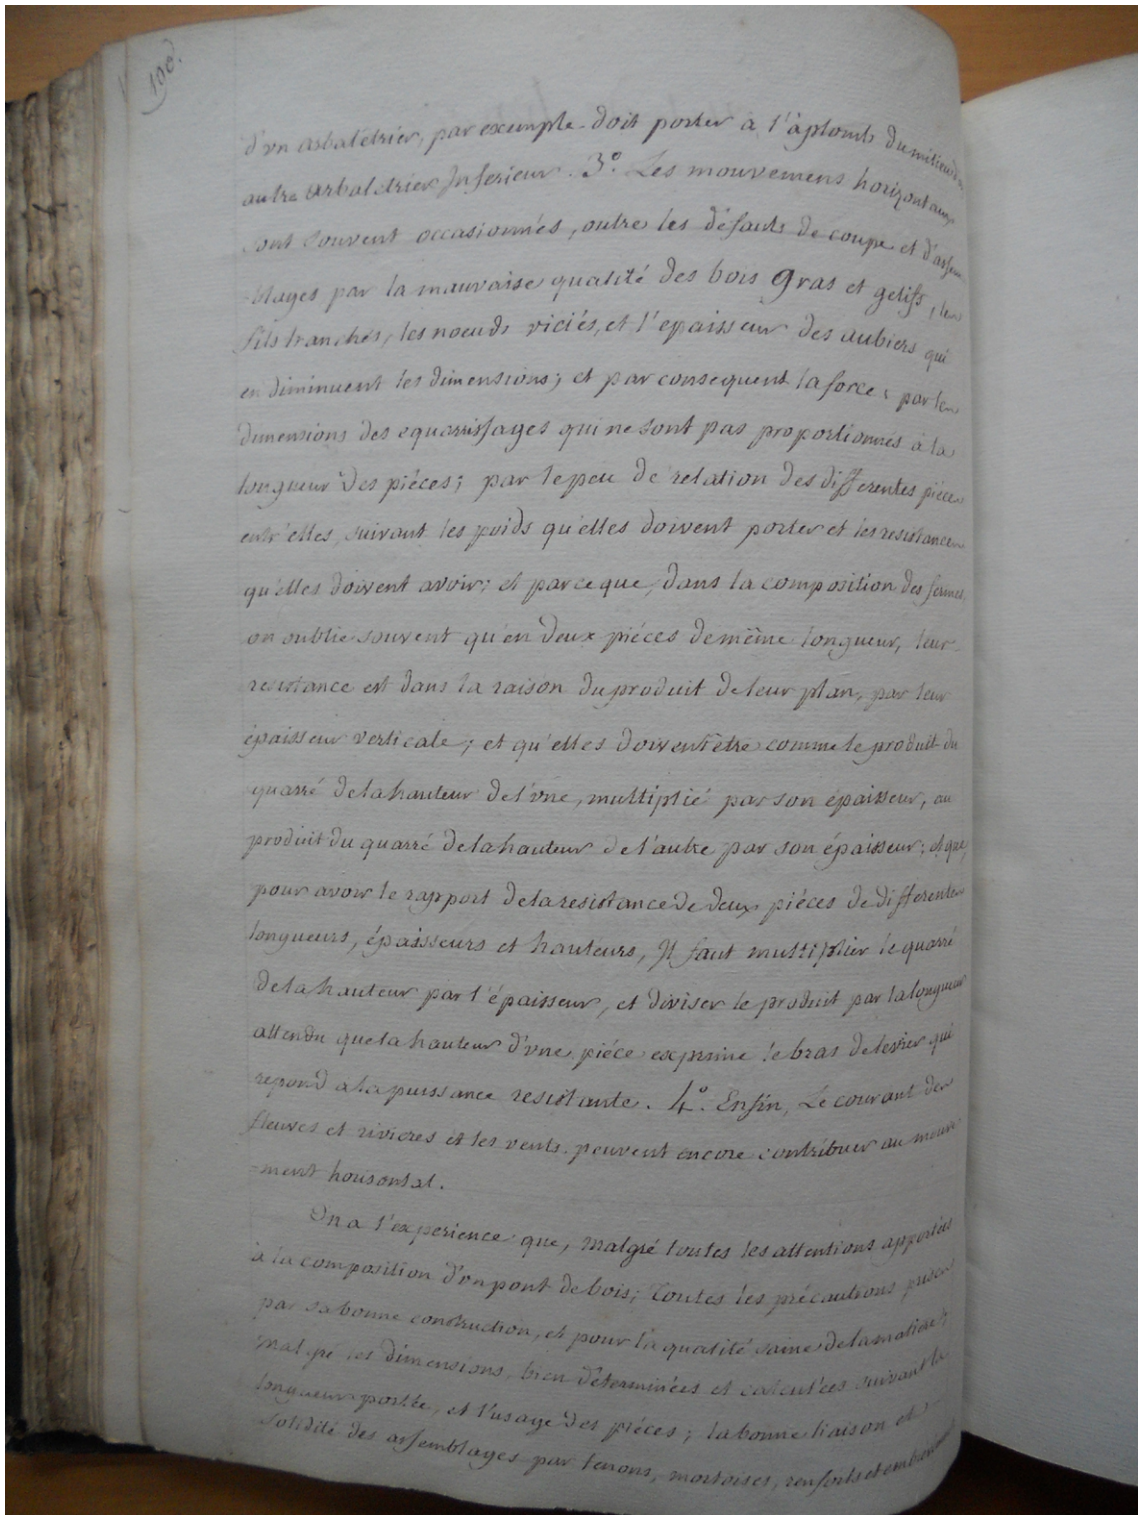 100.
d'vn arbaletrier, par exemple doit porter à l'àplomb du milieu d'un
autre arbaletrier Jnferieur. 3°. Les mouvemens horizontaux
sont souvent occasionnés, outre les défauts de coupe et d'assem-
-blages par la mauvaise qualité des bois gras et gelifs, leurs
fils tranchés, les noeuds viciés, et l'epaisseur des aubiers qui
en diminuent les dimensions; et par consequent la force; par les
dimensions des equarrissages qui ne sont pas proportionnés à la
longueur des piéces; par le peu de relation des differentes piéces
entr'elles, suivant les poids qu'elles doivent porter et les resistances
qu'elles doivent avoir; et parce que, dans la composition des fermes,
on oublie souvent qu'en deux piéces de même longueur, leur
resistance est dans la raison du produit de leur plan, par leur
épaisseur verticale; et qu'elles doivent être comme le produit du
quarré de la hauteur de l'vne, multiplié par son épaisseur, au
produit du quarré de la hauteur de l'autre par son épaisseur; et que,
pour avoir le rapport de la resistance de deux piéces de differentes
longueurs, épaisseurs et hauteurs, Jl faut multiplier le quarré
de la hauteur par l'épaisseur, et diviser le produit par la longueur
attendu que la hauteur d'vne piéce exprime le bras de levier qui
repond a la puissance resistante. 4°. Enfin, Le courant des
fleuves et rivieres et les vents peuvent encore contribuer au mouve-
=ment horisontal.
On a l'experience que, malgré toutes les attentions apportées
à la composition d'vn pont de bois; toutes les précautions prises
par sa bonne construction, et pour la qualité saine de la matiere;
malgré les dimensions, bien déterminées et calculées suivant la
longueur portée, et l'usage des piéces; la bonne liaison et
solidité des assemblages par tenons, mortoises, renforts et embrevemens